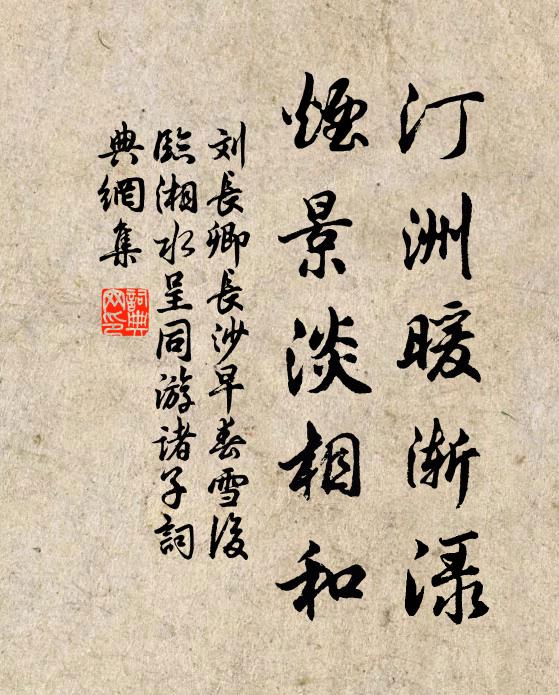 汀洲暖渐渌
烟景淡相和
刘长卿长沙早春雪後
臨湘水呈同游诸子詞
典網集
詞典
网印